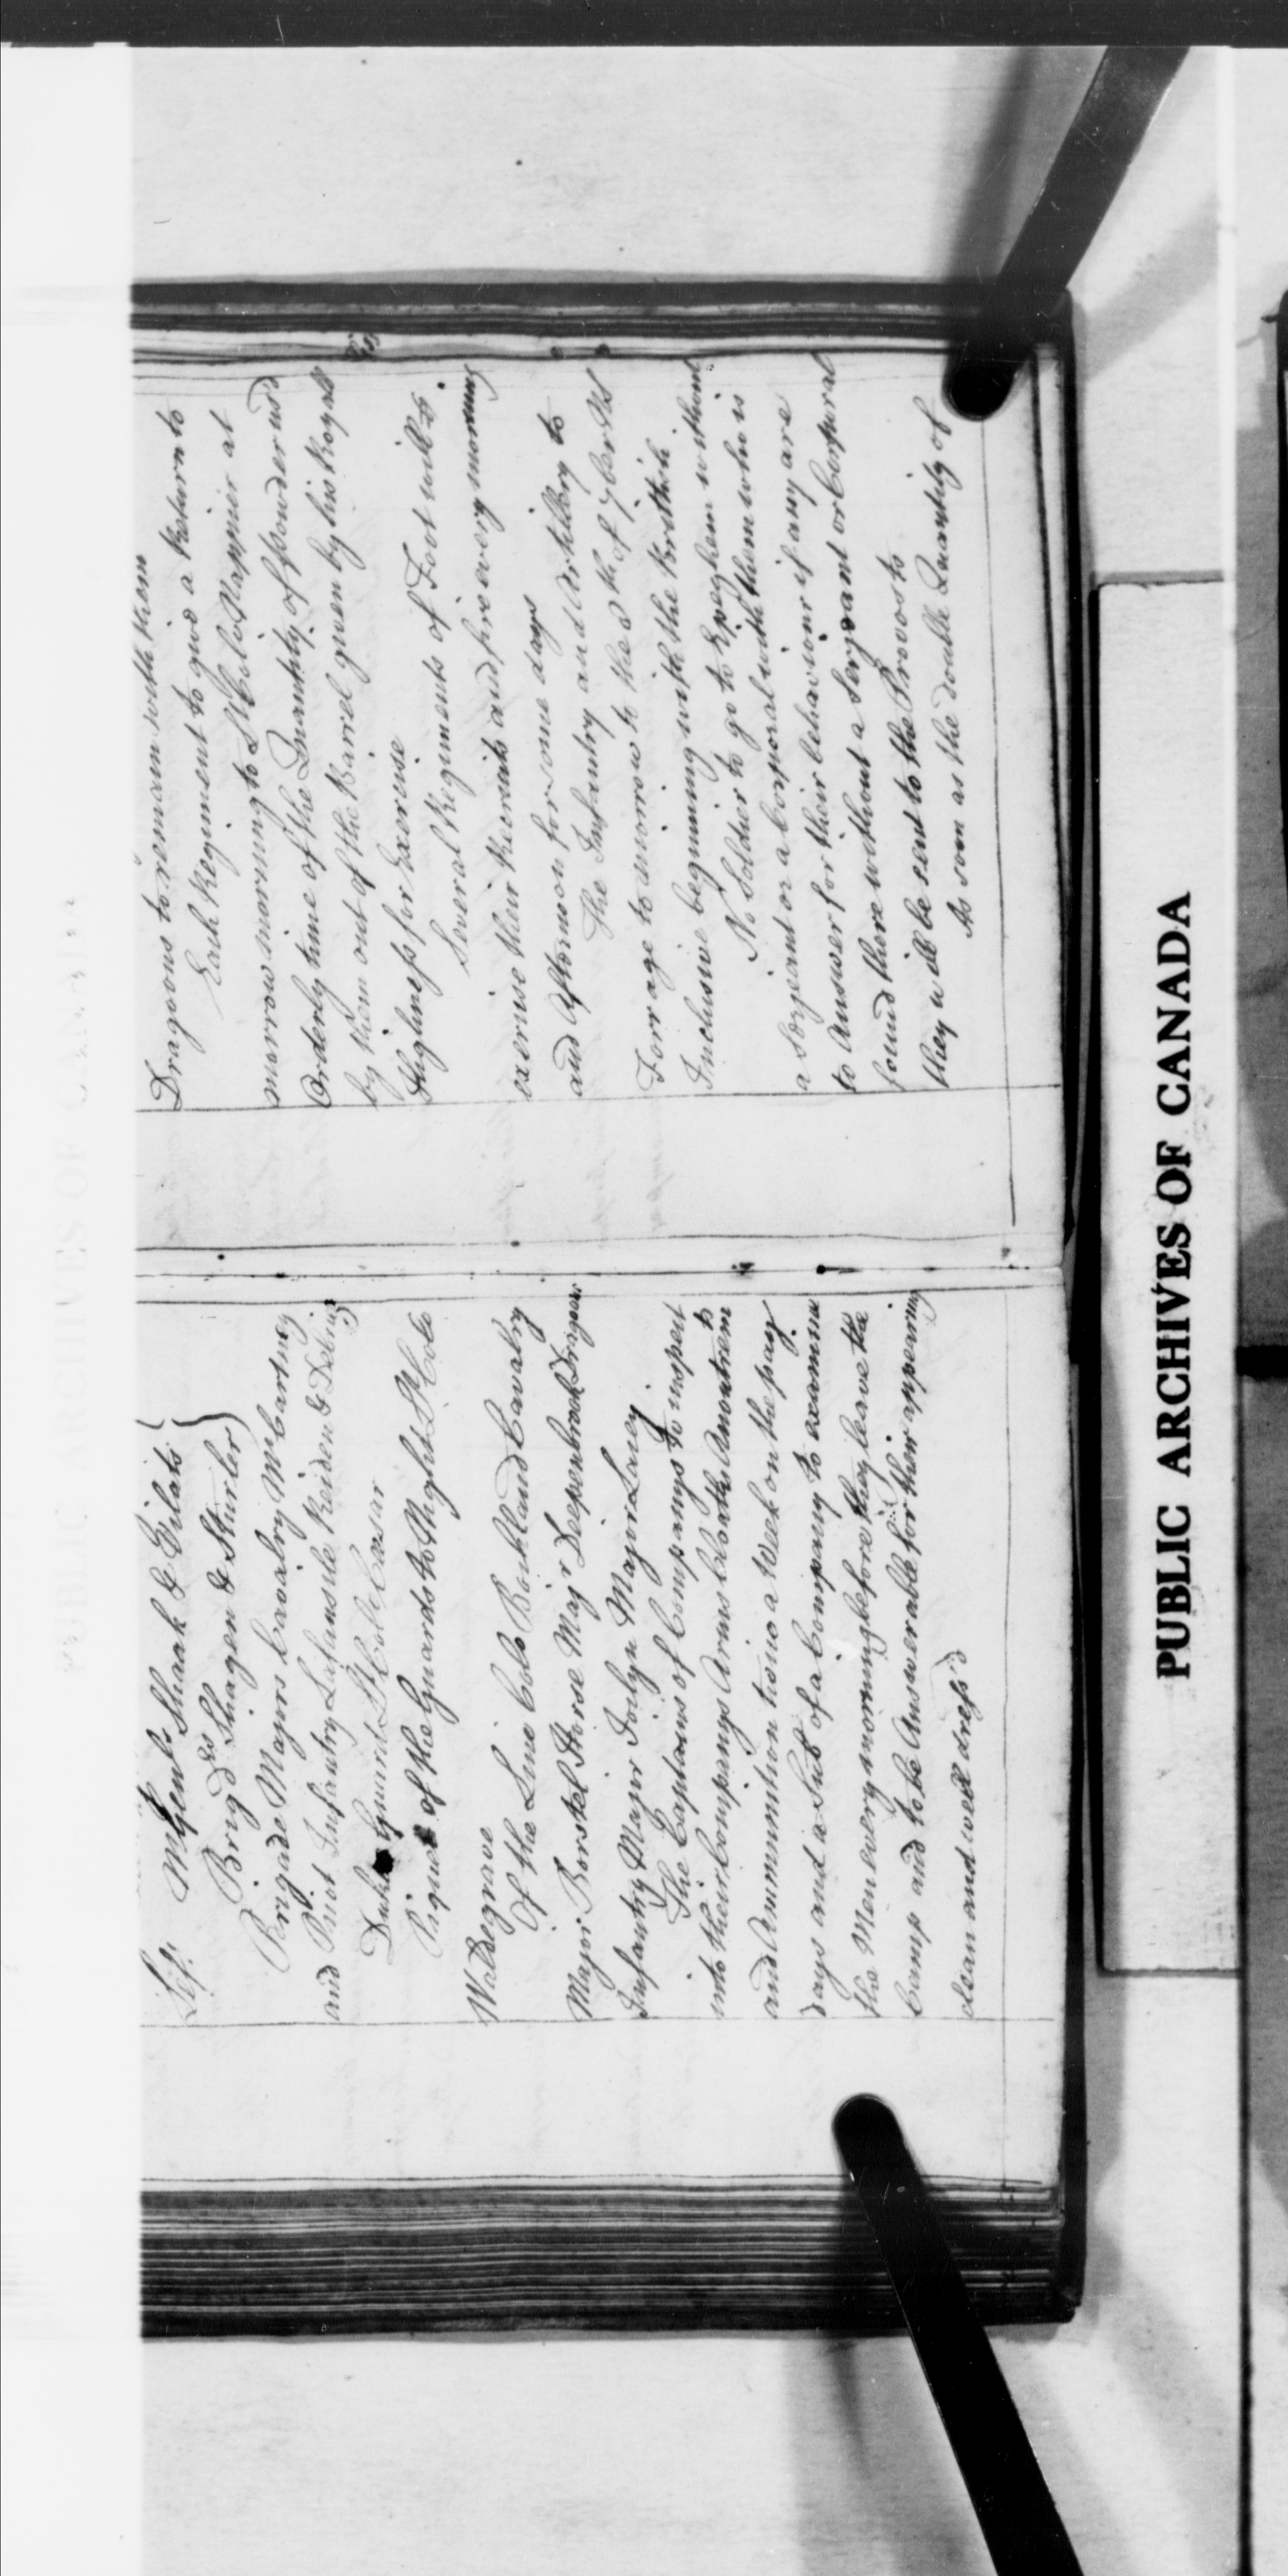 Lef: M Genls Shaak & Pilats
Brigds Shagen & Sturler
Brigade Majors Cavalry McCartney
and Priot Infantry Lafansile Reiden & Debries
Duke Guard Lt Coll Caesar
Piquet of the Guards to Night Lt Colo
Waldegrave
Of the Line Colo Bockland Cavalry
Major Borstel Horse Majr Deepenbrook Dragoons
Infantry Major Joilyn Major Lacey
The Captains of Companys to inspect
into their Companys Arms Cloaths Accoutrem ts
and Ammunition twice a Week on the pay
days and a Sub of a Company to examine
the Men every morning before they leave the
Camp and to be Answerable for their appearing
clean and well dress'd
Dragoons to remain with them
Each Regiment to give a Return to
morrow morning to Lt Colo Nappier at
Orderly time of the Quantity of powder us'd
by them out of the Barrel given by his Royall
Highness for Exercise
Several Regiments of Foot will
exercise their Recruits and fire every morning
and Afternoon for some days
The Infantry and Artillery to
Forrage to morrow to the 8th of 7ber NS
Inclusive beginning with the Brittish
No Soldier to go to Epeghem without
a Serjeant or a Corporal with them who is
to Answer for their behaviour if any are
found there without a Serjeant or Corporal
they will be sent to the Provosts
As soon as the double Quantity of
PUBLIC ARCHIVES OF CANADA